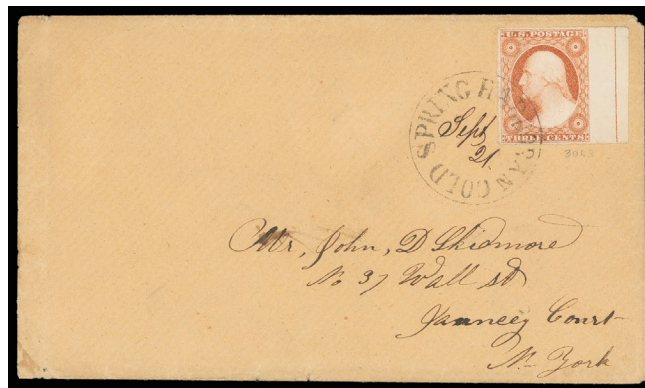 U.S. POSTAGE
THREE CENTS
COLD SPRING H
Sept
21.
Mr, John, D Skidmore
No 37 Wall st
Jauncey Court
N- York